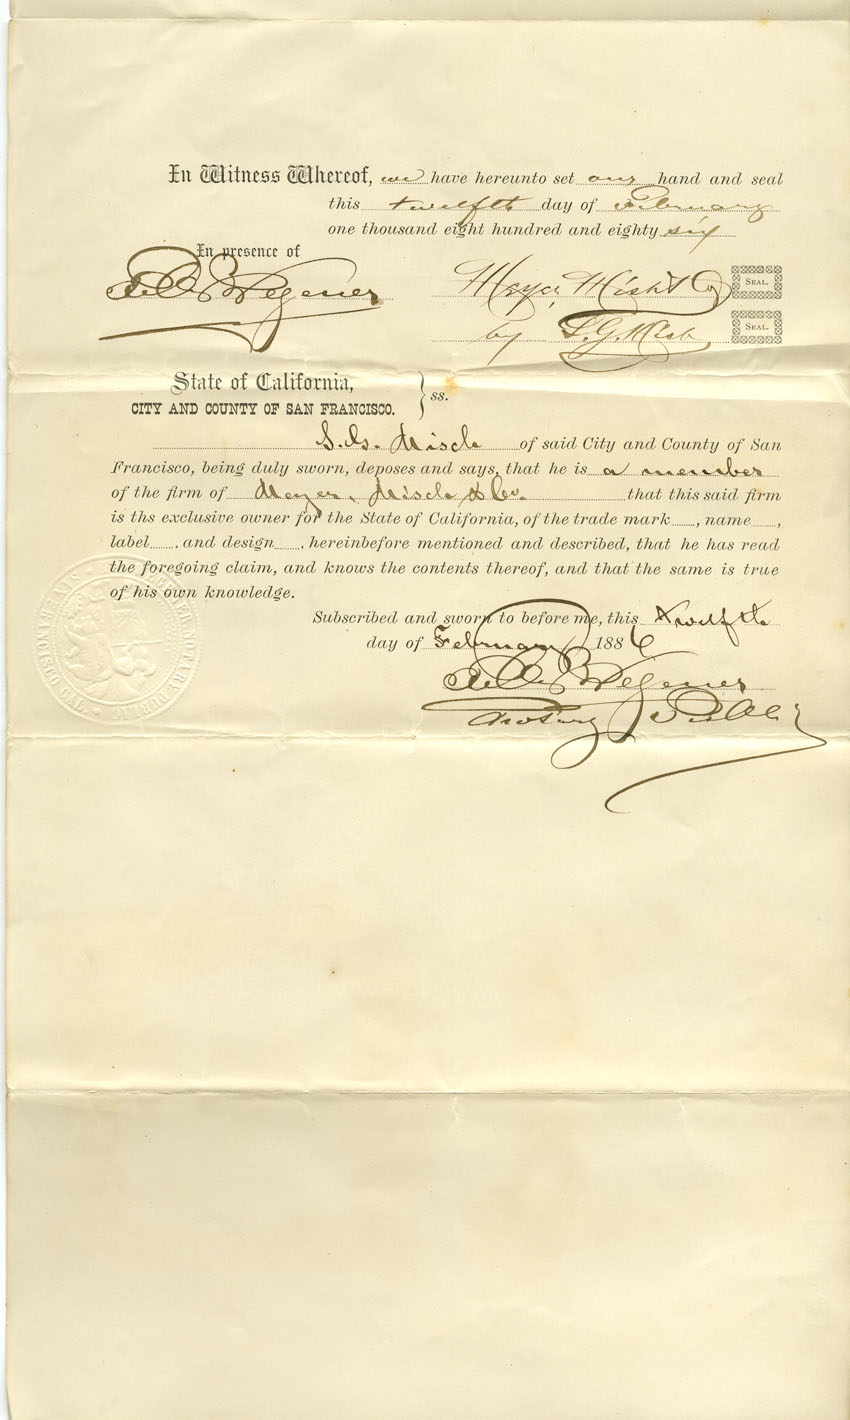 In Witness Whereof, we have hereunto set our hand and seal
this twelfth day of February
one thousand eight hundred and eighty six
In presence of
Wegener
Meyer, Mish & Co
SEAL.
by S. G. Mish
SEAL.
State of California,
CITY AND COUNTY OF SAN FRANCISCO.
ss.
S. G. Misch of said City and County of San
Francisco, being duly sworn, deposes and says, that he is a member
of the firm of Meyer, Misch & Co. that this said firm
is ths exclusive owner for the State of California, of the trade mark......, name......,
label......, and design......, hereinbefore mentioned and described, that he has read
the foregoing claim, and knows the contents thereof, and that the same is true
of his own knowledge.
Subscribed and sworn to before me, this twelfth
day of February 1886
Wegener
Notary Public
NOTARY PUBLIC
CISCO CAL.